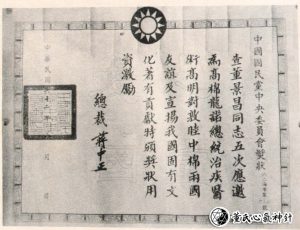 中國國民黨中央委員會獎狀
查董景昌同志五次應邀
為高棉龍諾總統治疾醫
術高明對敦睦中棉兩國
友誼及宣揚我國固有文
化著有貢獻特頒獎狀用
資激勵
總裁 蔣中正
中華民國 年 月 日
董氏心氣神针